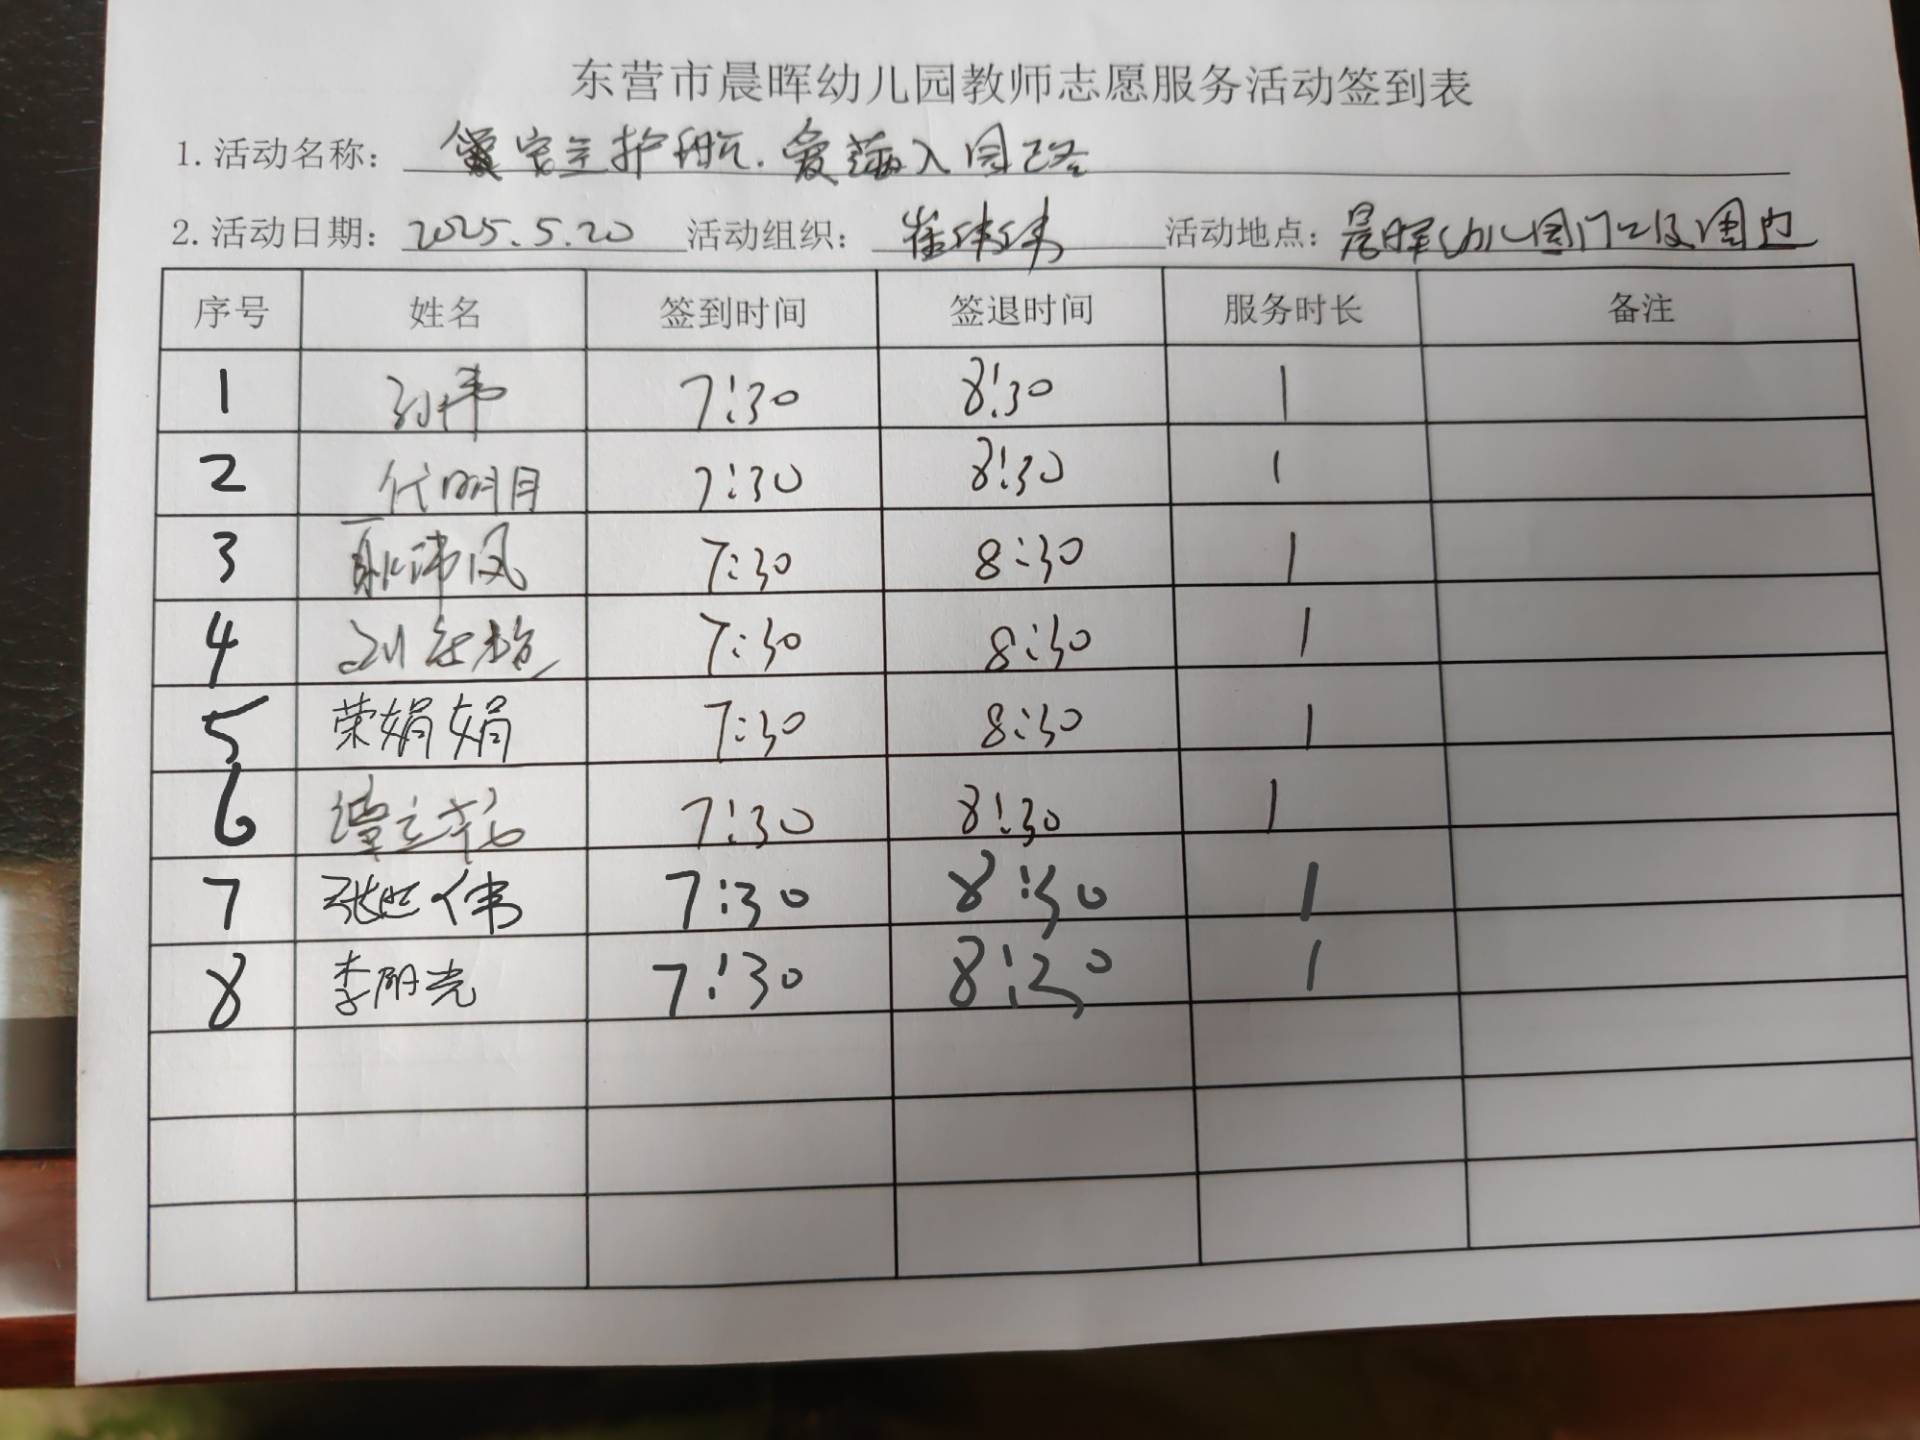 东营市晨晖幼儿园教师志愿服务活动签到表
1.活动名称：护航.爱满入园路
2.活动日期：2025.5.20 活动组织：崔伟伟 活动地点：晨晖幼儿园门口及周边
序号 姓名 签到时间 签退时间 服务时长 备注
1 孙伟 7:30 8:30 1
2 代明月 7:30 8:30 1
3 7:30 8:30 1
4 7:30 8:30 1
5 荣娟娟 7:30 8:30 1
6 7:30 8:30 1
7 张世伟 7:30 8:30 1
8 李阳光 7:30 8:30 1